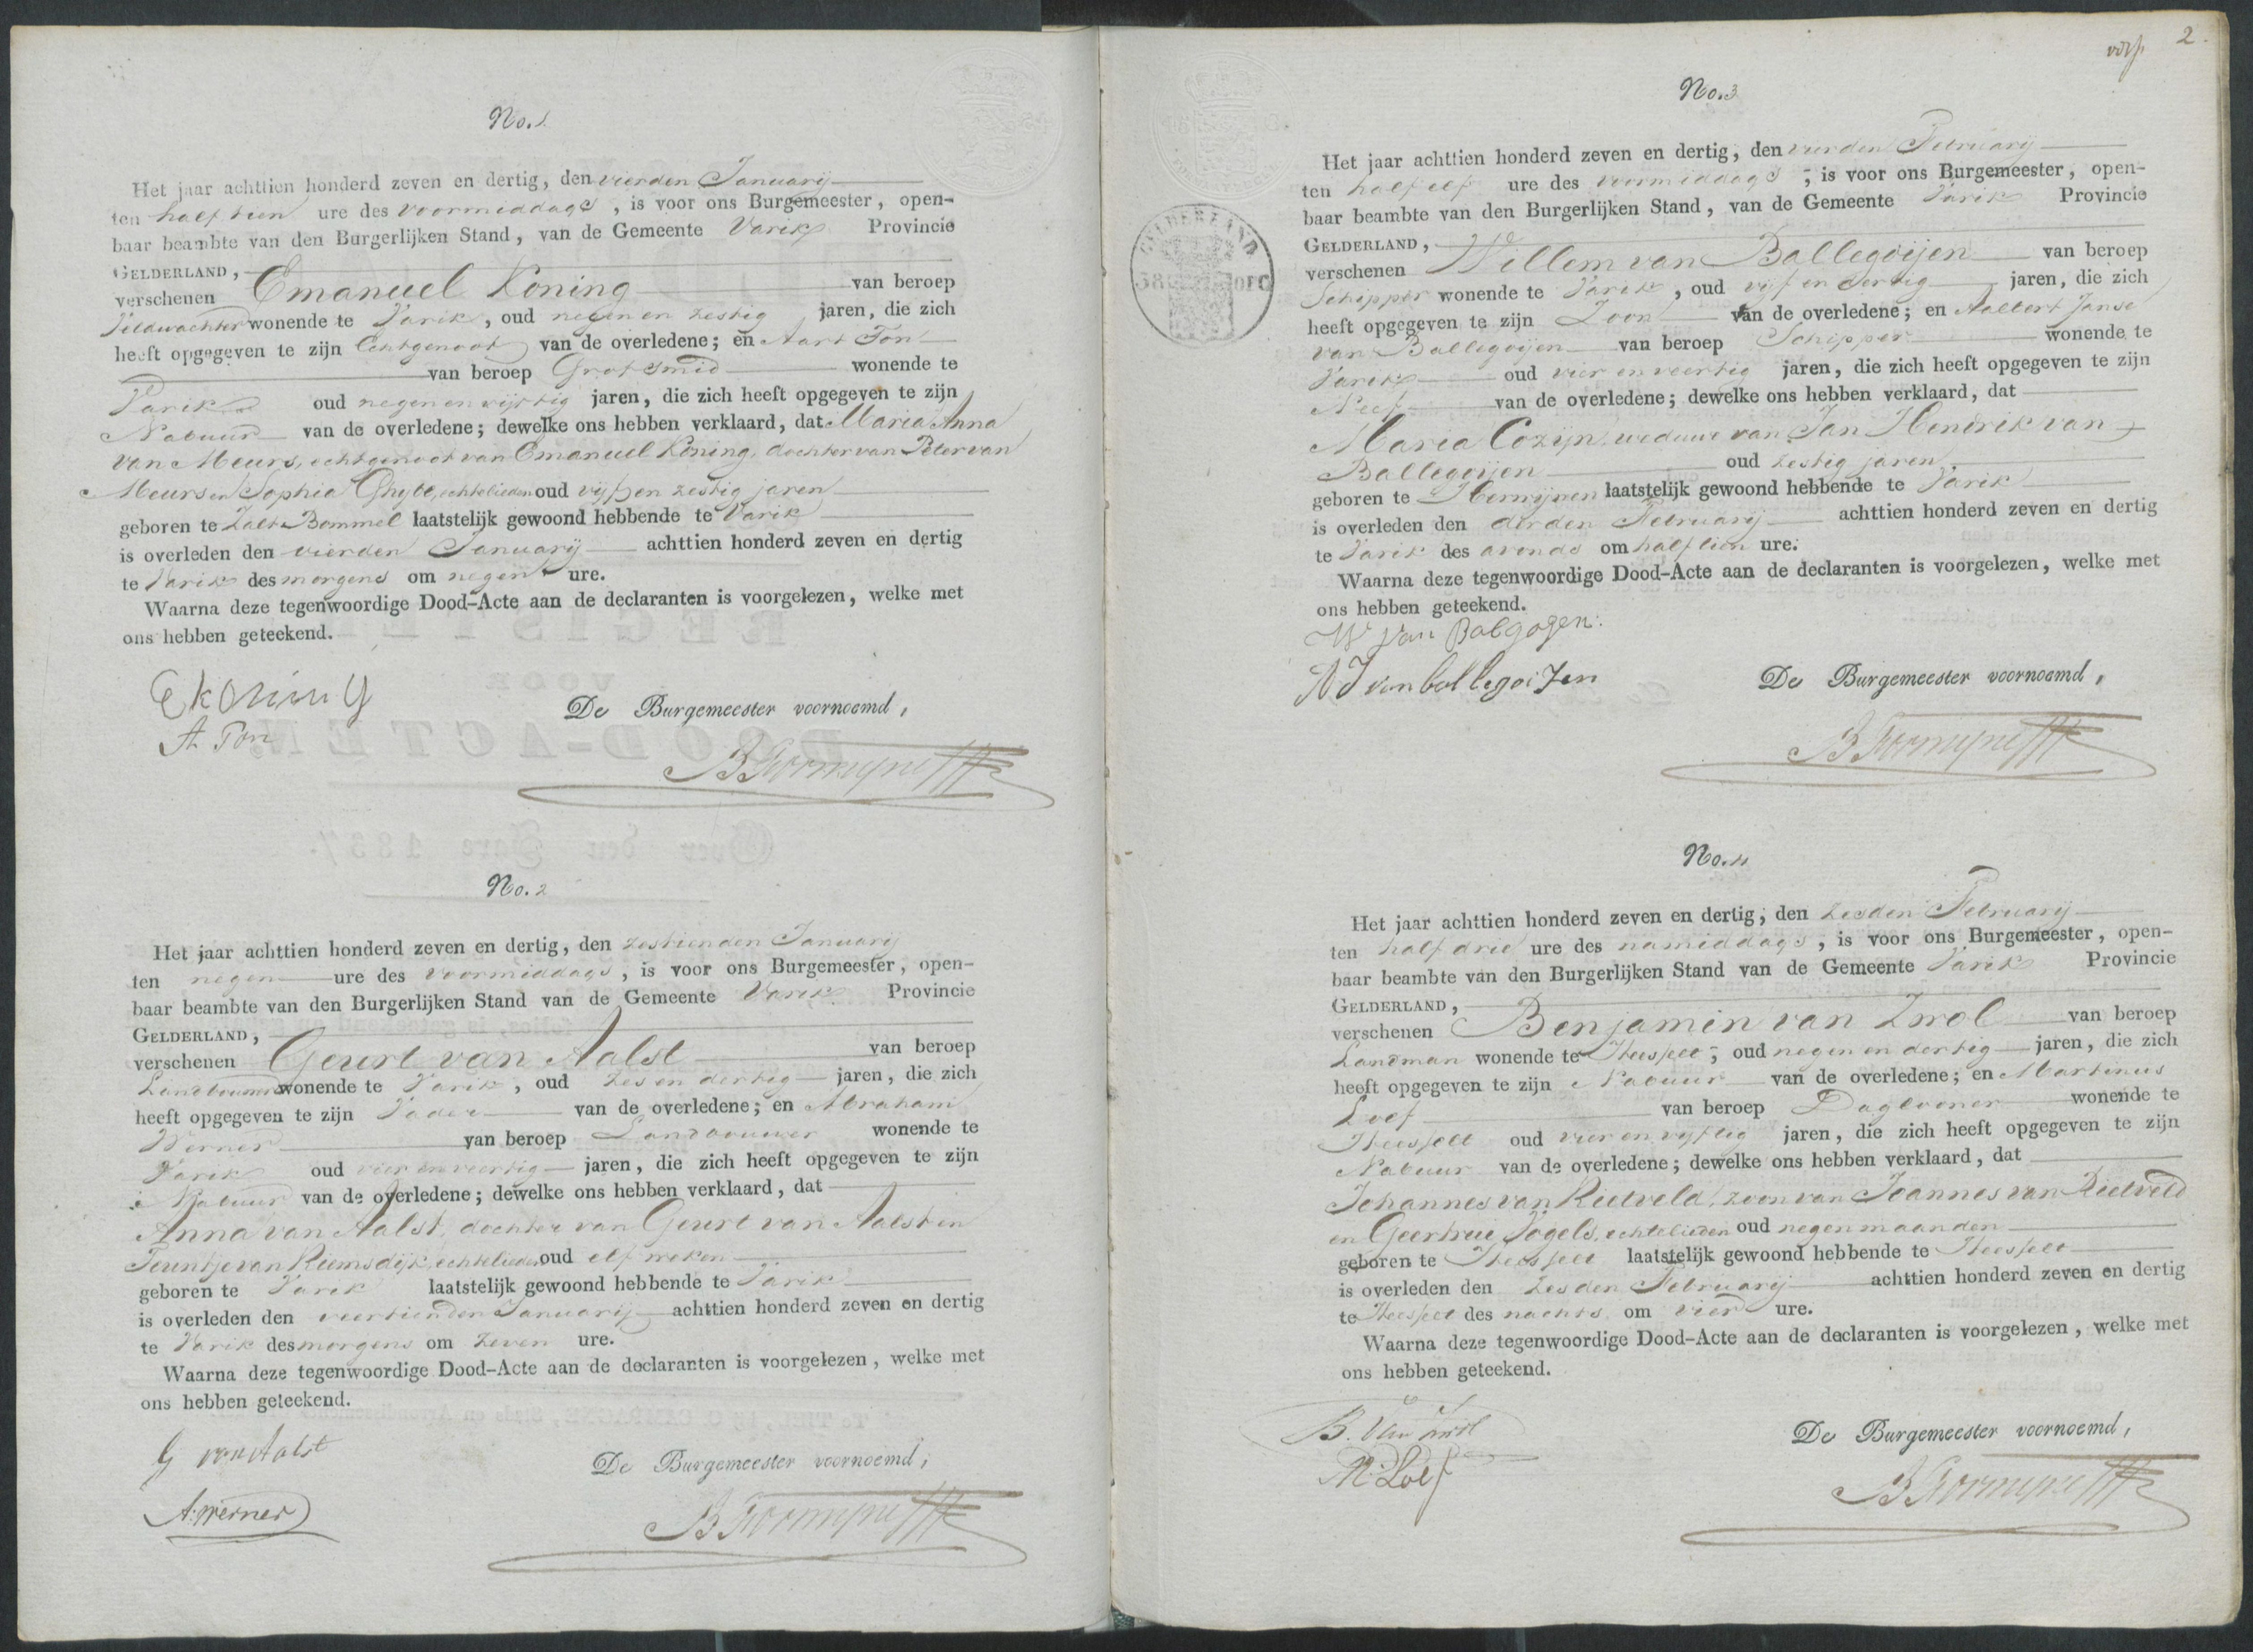 No. 1
Het jaar achttien honderd zeven en dertig, den vierden Januarij
ten half tien ure des voormiddags, is voor ons Burgemeester, open-
baar beambte van den Burgerlijken Stand, van de Gemeente Varik Provincie
GELDERLAND,
verschenen Emanuel Koning van beroep
Veldwachter wonende te Varik, oud negen en zestig jaren, die zich
heeft opgegeven te zijn Echtgenoot van de overledene; en Aart Ton
van beroep Grofsmid wonende te
Varik oud negen en vijftig jaren, die zich heeft opgegeven te zijn
Nabuur van de overledene; dewelke ons hebben verklaard, dat Maria Anna
van Meurs, echtgenoot van Emanuel Koning, dochter van Peter van
Meurs en Sophia echtelieden oud vijf en zestig jaren
geboren te Zalt-Bommel laatstelijk gewoond hebbende te Varik
is overleden den vierden Januarij achttien honderd zeven en dertig
te Varik des morgens om negen ure.
Waarna deze tegenwoordige Dood-Acte aan de declaranten is voorgelezen, welke met
ons hebben geteekend.
E koning
A Ton
De Burgemeester voornoemd,
No. 2
Het jaar achttien honderd zeven en dertig, den zestienden Januarij
ten negen ure des voormiddags, is voor ons Burgemeester, open-
baar beambte van den Burgerlijken Stand van de Gemeente Varik Provincie
GELDERLAND,
verschenen Geurt van Aalst van beroep
Landbouwer wonende te Varik, oud zes en dertig jaren, die zich
heeft opgegeven te zijn Vader van de overledene; en Abraham
Werner van beroep Landbouwer wonende te
Varik oud vier en veertig jaren, die zich heeft opgegeven te zijn
Nabuur van de overledene; dewelke ons hebben verklaard, dat
Anna van Aalst, dochter van Geurt van Aalst en
Teuntje van Riemsdijk, echtelieden oud elf weken
geboren te Varik laatstelijk gewoond hebbende te Varik
is overleden den veertienden Januarij achttien honderd zeven en dertig
te Varik des morgens om zeven ure.
Waarna deze tegenwoordige Dood-Acte aan de declaranten is voorgelezen, welke met
ons hebben geteekend.
G van Aalst
A. Werner
De Burgemeester voornoemd,
2.
No. 3
GELDERLAND
Het jaar achttien honderd zeven en dertig, den vierden Februarij
ten half elf ure des voormiddags, is voor ons Burgemeester, open-
baar beambte van den Burgerlijken Stand, van de Gemeente Varik Provincie
GELDERLAND,
verschenen Willem van Ballegoijen van beroep
Schipper wonende te Varik, oud vijf en dertig jaren, die zich
heeft opgegeven te zijn Zoon van de overledene; en Aalbert Janse
van Ballegoijen van beroep Schipper wonende te
Varik oud vier en veertig jaren, die zich heeft opgegeven te zijn
Neef van de overledene; dewelke ons hebben verklaard, dat
Maria Cozijn, weduwe van Jan Hendrik van
Ballegoijen oud zestig jaren
geboren te Herwijnen laatstelijk gewoond hebbende te Varik
is overleden den derden Februarij achttien honderd zeven en dertig
te Varik des avonds om half tien ure.
Waarna deze tegenwoordige Dood-Acte aan de declaranten is voorgelezen, welke met
ons hebben geteekend.
W van Balgogen
A J van ballegoijen
De Burgemeester voornoemd,
No. 4
Het jaar achttien honderd zeven en dertig, den zesden Februarij
ten half drie ure des namiddags, is voor ons Burgemeester, open-
baar beambte van den Burgerlijken Stand van de Gemeente Varik Provincie
GELDERLAND,
verschenen Benjamin van Zwol van beroep
Landman wonende te Heesselt, oud negen en dertig jaren, die zich
heeft opgegeven te zijn Nabuur van de overledene; en Martinus
Loef van beroep Daglooner wonende te
Heesselt oud vier en vijftig jaren, die zich heeft opgegeven te zijn
Nabuur van de overledene; dewelke ons hebben verklaard, dat
Johannes van Rietveld, zoon van Joannes van Rietveld
en Geertrui Vogels, echtelieden oud negen maanden
geboren te Heesselt laatstelijk gewoond hebbende te Heesselt
is overleden den zesden Februarij achttien honderd zeven en dertig
te Heesselt des nachts om vier ure.
Waarna deze tegenwoordige Dood-Acte aan de declaranten is voorgelezen, welke met
ons hebben geteekend.
B. van Zwol
M: Loef
De Burgemeester voornoemd,